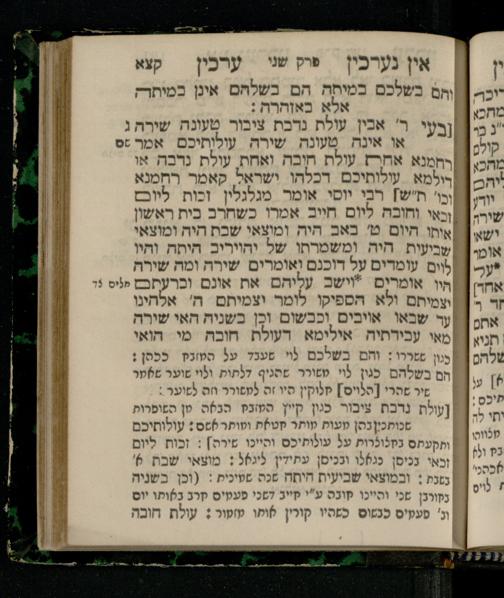 אין נערכין פרק שני ערכין קצא
והם בשלכם במיתה הם בשלהם אינן במיתה
אלא באזהרה :
[בעי ר' אבין עולת נדבת ציבור טעונה שירה ג
או אינה טעונה שירה עולותיכם אמר שם
רחמנא אחת עולת חובה ואחת עולת נדבה או
דילמא עולותיכם דכלהו ישראל קאמר רחמנא
וכו' ת"ש] רבי יוסי אומר מגלגלין זכות ליום
זכאי וחובה ליום חייב אמרו כשחרב בית ראשון
אותו היום ט' באב היה ומוצאי שבת היה ומוצאי
שביעית היה ומשמרתו של יהויריב היתה והיו
לוים עומדים על דוכנם ואומרים שירה ומה שירה
היו אומרים *וישב עליהם את אונם וברעתם תלים צד
יצמיתם ולא הספיקו לומר יצמיתם ה' אלהינו
עד שבאו אויבים וכבשום וכן בשניה האי שירה
מאי עבידתיה אילימא דעולת חובה מי הואי
כגון ששררו : והם בשלכם לוי שעבד על המזבח ככהן :
הם בשלהם כגון לוי משורר שהגיף דלתות ולוי שוער שאמר
שיר שהרי [הלוים] חלוקין היו זה למשורר וזה לשוער :
[עולת נדבת ציבור כגון קייץ המזבח הבאה מן השופרות
שנותנין בהן מעות מותר חטאת ומותר אשם : עולותיכם
ותקעתם בחצוצרות על עולותיכם והיינו שירה] : זכות ליום
זכאי בניסן נגאלו ובניסן עתידין ליגאל : מוצאי שבת א'
בשבת : ובמוצאי שביעית היתה שנה שמינית : (וכן בשניה
בחורבן שני והיינו חובה ע"י חייב דשני פעמים חרב באותו יום
וב' פעמים כבשום כשהיו קורין אותו מזמור : עולת חובה